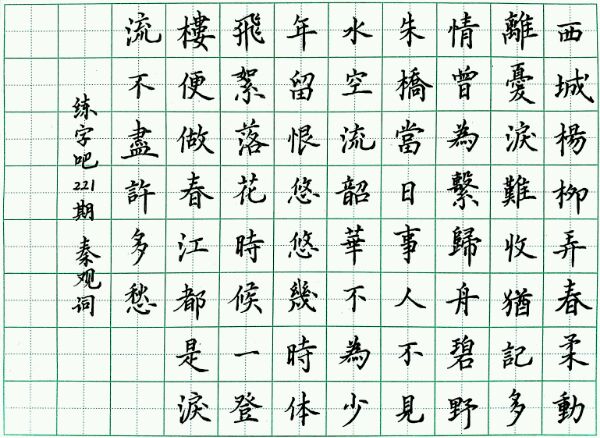 西城楊柳弄春柔動
離憂淚難收猶記多
情曾為繫歸舟碧野
朱橋當日事人不見
水空流韶華不為少
年留恨悠悠幾時体
飛絮落花時候一登
樓便做春江都是淚
流不盡許多愁
练字吧221期 秦观词